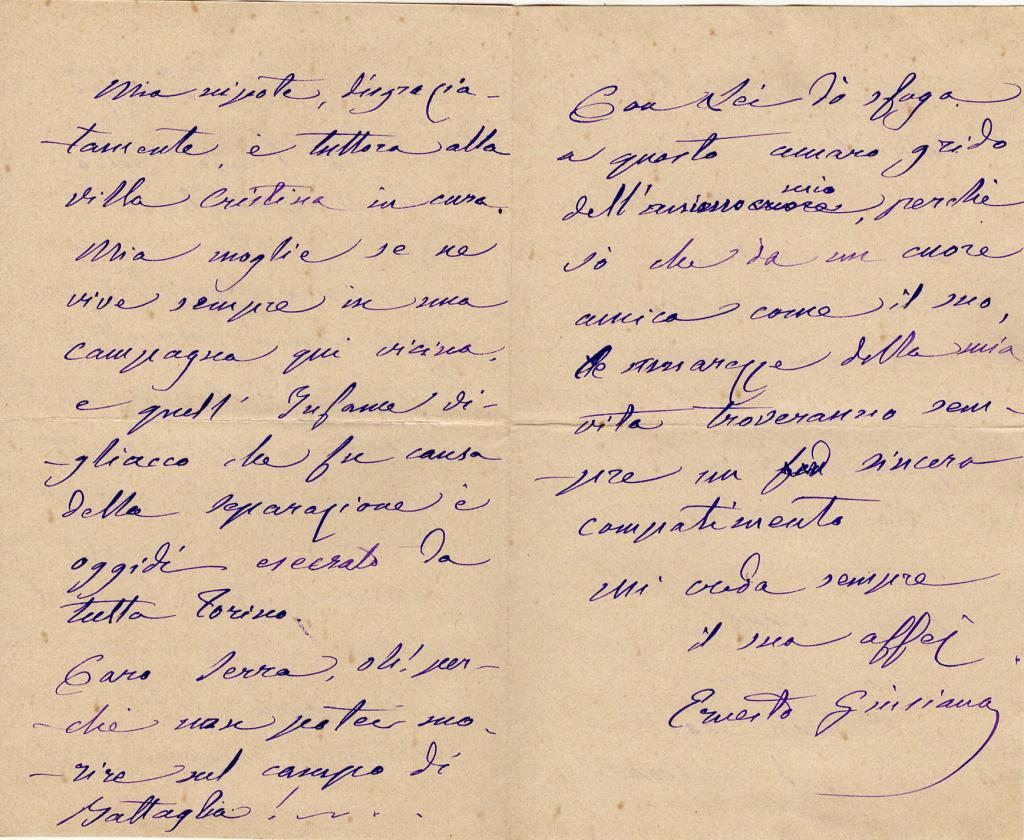 Mia nipote, disgrazia-
-tamente, è tuttora alla
villa Cristina in cura.
Mia moglie se ne
vive sempre in una
campagna qui vicina,
e quell' Infame vi-
-gliacco che fu causa
della separazione è
oggidì esecrato da
tutta Torino.
Caro Serra, oh! per-
-chè non potei mo-
-rire sul campo di
Battaglia! . . .
Con Lei dò sfogo
a questo amaro grido
dell' mio, perchè
sò che da un cuore
amico come il suo,
le amarezze della mia
vita troveranno sem-
-pre un sincero
compatimento
Mi creda sempre
il suo affez.
Ernesto